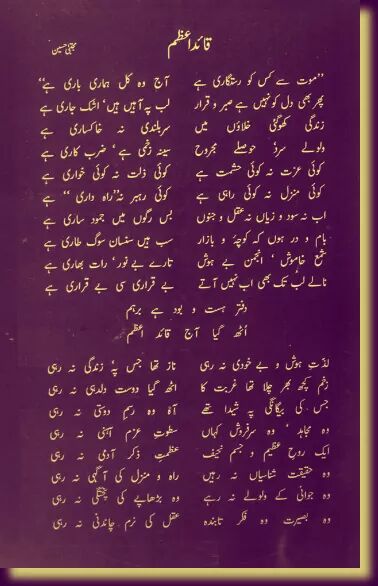 قائد اعظم
مجتبیٰ حسین
”موت سے کس کو رستگاری ہے آج وہ کل ہماری باری ہے“
پھر بھی دل کو نہیں ہے صبر و قرار لب پہ آہیں ہیں‘ اشک جاری ہے
زندگی کھو گئی خلاؤں میں سربلندی نہ خاکساری ہے
ولولے سرد‘ حوصلے مجروح سینہ زخمی ہے‘ ضرب کاری ہے
کوئی عزت نہ کوئی حشمت ہے کوئی ذلت نہ کوئی خواری ہے
کوئی منزل نہ کوئی راہی ہے کوئی رہبر نہ ”راہ داری“ ہے
اب نہ سود و زیاں نہ عقل و جنوں بس رگوں میں جمود ساری ہے
بام و در ہوں کہ کوچہ و بازار سب ہیں سنسان سوگ طاری ہے
شمع خاموش‘ انجمن بے ہوش تارے بے نور‘ رات بھاری ہے
نالے لب تک بھی اب نہیں آتے بے قراری سی بے قراری ہے
دفتر ہست و بود ہے برہم
اُٹھ گیا آج قائد اعظم
لذتِ ہوش و بے خودی نہ رہی ناز تھا جس پہ‘ زندگی نہ رہی
زخم کچھ بھر چلا تھا غربت کا اٹھ گیا دوست دلدہی نہ رہی
جس کی بیگانگی پہ شیدا تھے آہ وہ رسمِ دوستی نہ رہی
وہ مجاہد‘ وہ سرفروش کہاں سطوتِ عزم آہنی نہ رہی
ایک روح عظیم و جسم نحیف عظمتِ ذکر آدمی نہ رہی
وہ حقیقت شناسیاں نہ رہیں راہ و منزل کی آگہی نہ رہی
وہ جوانی کے ولولے نہ رہے وہ بڑھاپے کی پختگی نہ رہی
وہ بصیرت وہ فکر تابندہ عقل کی نرم چاندنی نہ رہی